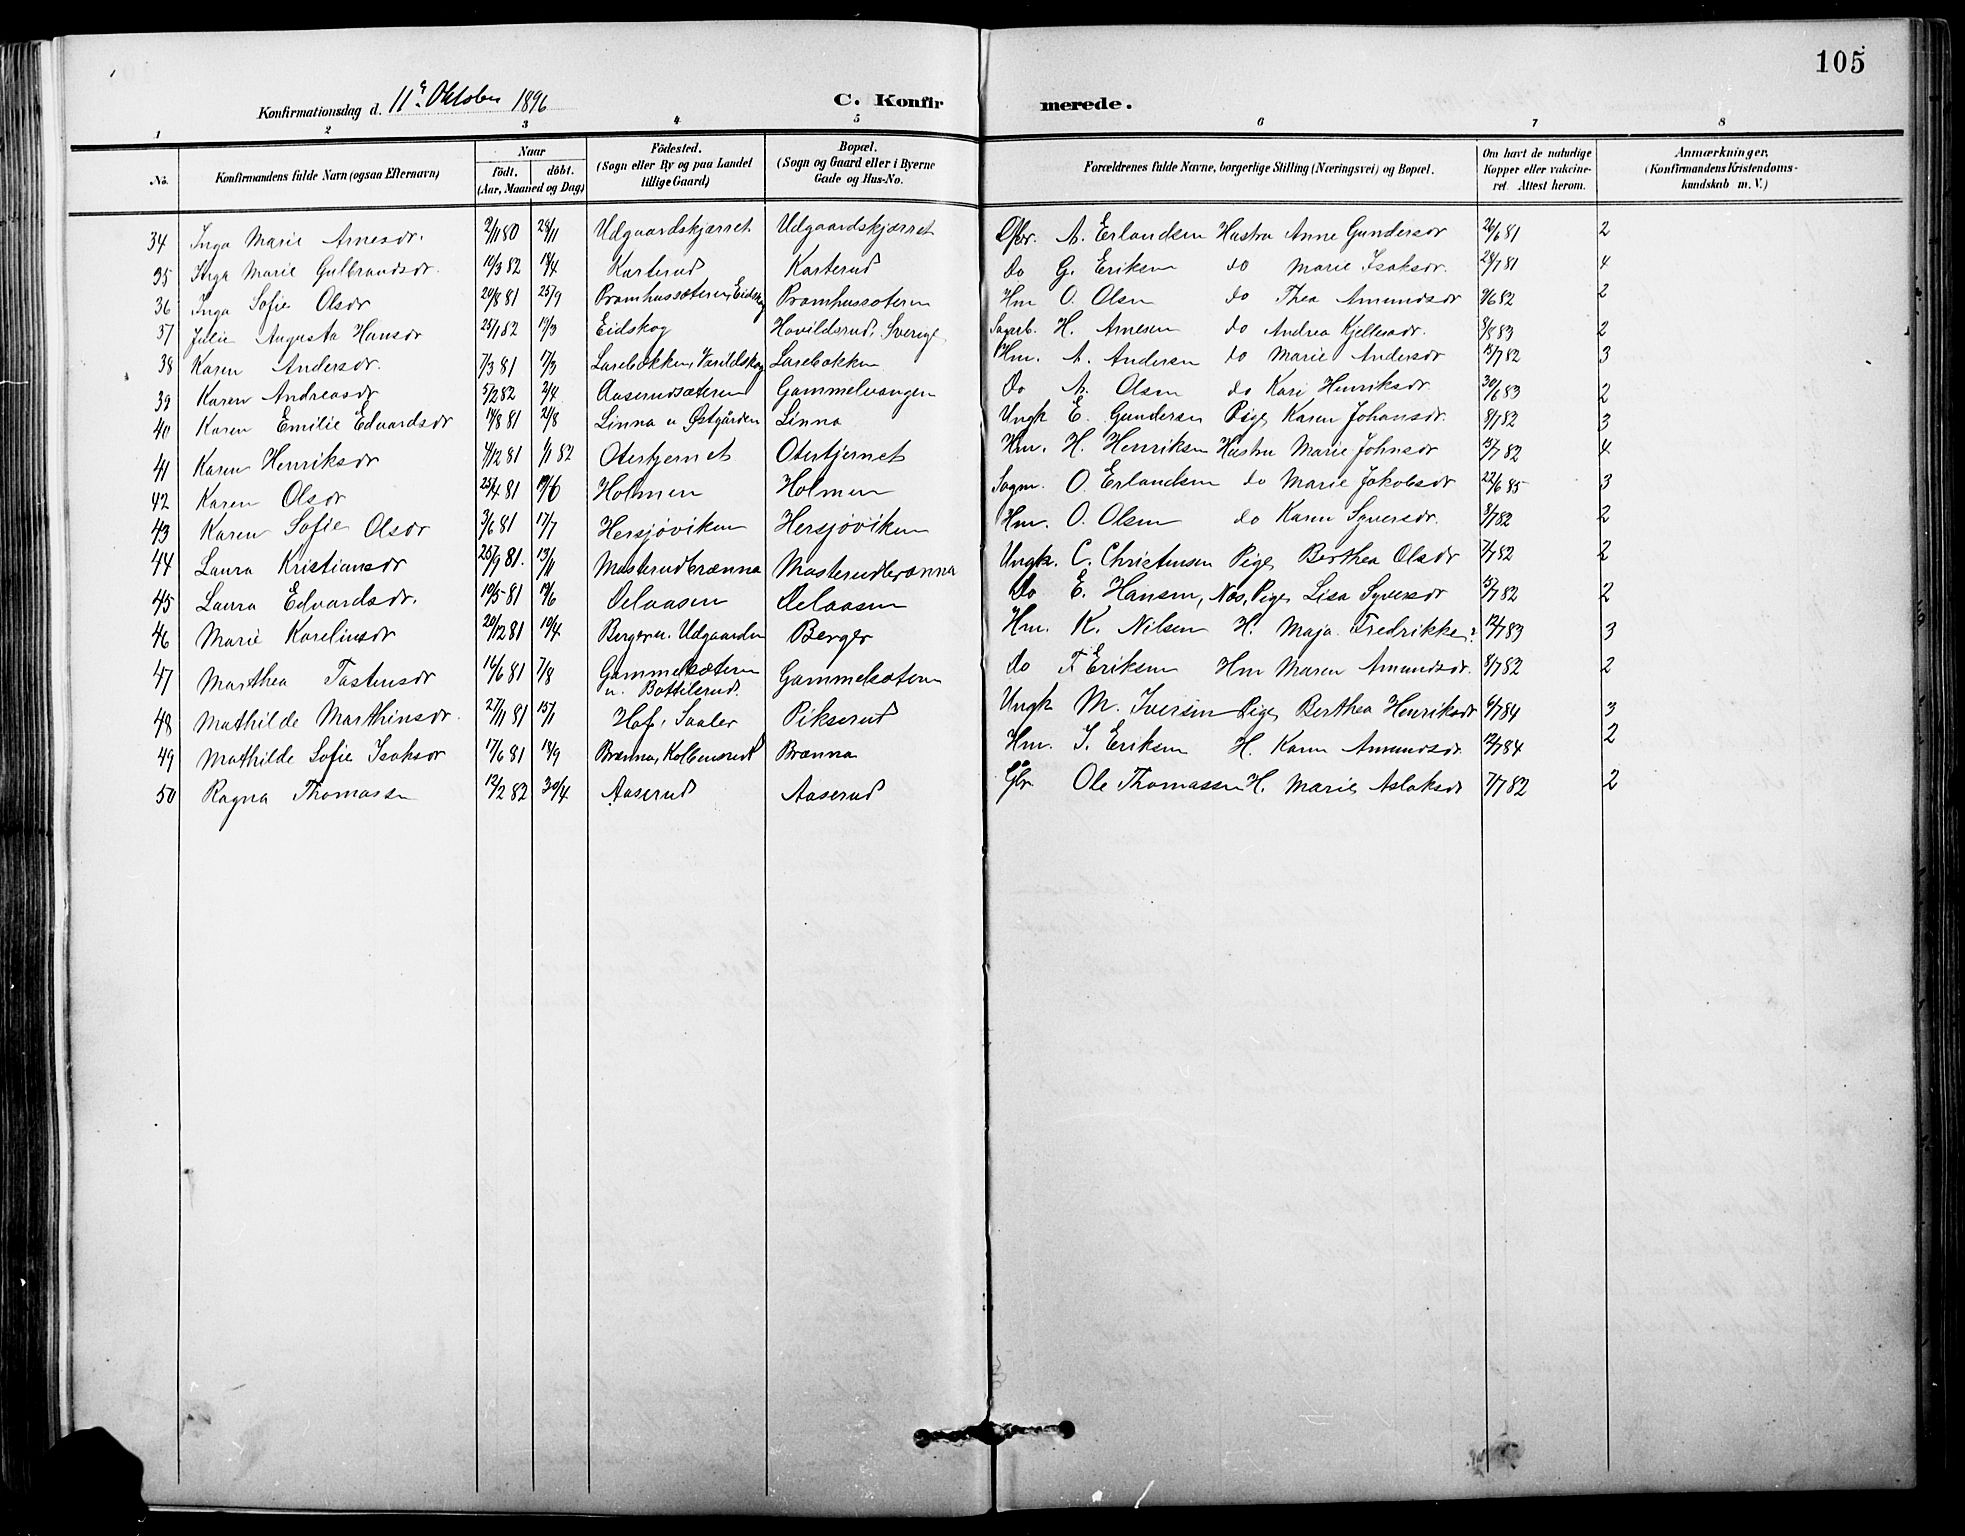 105
Konfirmationsdag d. 11te Oktober 1896 C. Konfirmerede.
1 2 3 4 5 6 7 8
No. Konfirmandens fulde Navn (ogsaa Efternavn) Naar födt. döbt. (Aar, Maaned og Dag) Födested. (Sogn eller By og paa Landet tillige Gaard) Bopæl. (Sogn og Gaard eller i Byerne Gade og Hus-No. Forældrenes fulde Navne, borgerlige Stilling (Næringsvei) og Bopæl. Om havt de naturlige Kopper eller vaccineret. Attest herom. Anmærkninger. (Konfirmandens Kristendomskundskab m. V.)
34 Inga Marie Arnesdr. 2/11 80 28/11 Udgaardskjærret Udgaardskjærret A. Erlandsen Hustru Anne Gundersdr 26/6 81 2
35 Inga Marie Gulbrandsdr. 10/3 82 Karterud Karterud Do G. Eriksen do Marie Isaksdr. 4
36 Inga Sofie Olsdr 20/8 81 25/9 Pramhussæteren, Eidskog Pramhussæteren Hm O. Olsen do Thea Amundsdr 2
37 Julie Augusta Hansdr 25/1 82 12/3 Eidskog Havildsrud, Sverige Sagarb. H. Arnesen do Andrea Kjeldsdr. 2
38 Karen Andersdr. 7/3 81 17/3 Larsbakken, Varildskog Larsbakken Hm. A. Andersen do Marie Andersdr 3
39 Karen Andreasdr 5/2 82 2/4 Aaserudsæteren Gammelvangen Do A. Olsen do Kari Henriksdr 30/6 83 2
40 Karen Emilie Edvardsdr 14/8 81 21/8 Linna u Østgården Linna Ungk E. Gundersen Pige Karen Johansdr. 8/7 82 3
41 Karen Henriksdr 4/12 81 1/1 82 Otertjernet Otertjernet Hm. H. Henriksen Hustru Marie Johnsdr 4
42 Karen Olsdr 25/4 81 Holmen Holmen Sagm. O. Erlandsen do Marie Jakobsdr 22/6 85 3
43 Karen Sofie Olsdr 3/6 81 17/7 Hersjøviken Hersjøviken Hm. O. Olsen do Karen Syversdr. 2
44 Laura Kristiansdr 25/9 81. 13/11 Masterudbrænna Masterudbrænna Ungk. C. Christensen Pige Berthea Olsdr 7/7 82 2
45 Laura Edvardsdr. 10/5 81 Delaasen Delaasen Do E. Hansen, Næs, Pige Lisa Syversdr 2
46 Marie Karelinsdr 20/12 81 10/4 Berger u. Udgaarden Berger Hm. K. Nilsen H. Maja Fredrikke 12/7 83 3
47 Marthea Tostensdr 16/6 81 7/8 Gammelsæteren u. Bottilsrud. Gammelsæteren Do T. Eriksen Hm Maren Amundsdr. 8/7 82 2
48 Mathilde Marthinsdr. 27/11 81 15/1 Hof, Soaler Pikserud Ungk M. Iversen Pige Berthea Henriksdr 3
49 Mathilde Sofie Isaksdr 17/6 81 18/9 Brænna, Kolbensrud Brænna Hm. I. Eriksen H. Karen Amundsdr. 12/7 84 2
50 Ragna Thomassen 12/2 82 30/4 Aaserud Aaserud Gbr Ole Thomassen H. Marie Aslaksdr 7/7 82 2